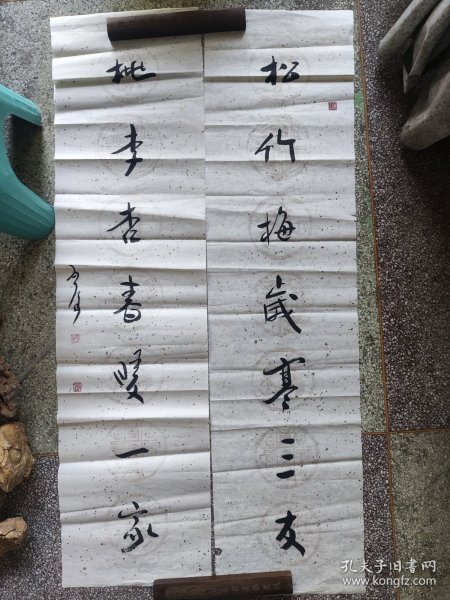 松竹梅歲寒三友
桃李杏春暖一家
孔夫子旧书网
www.kongfz.com